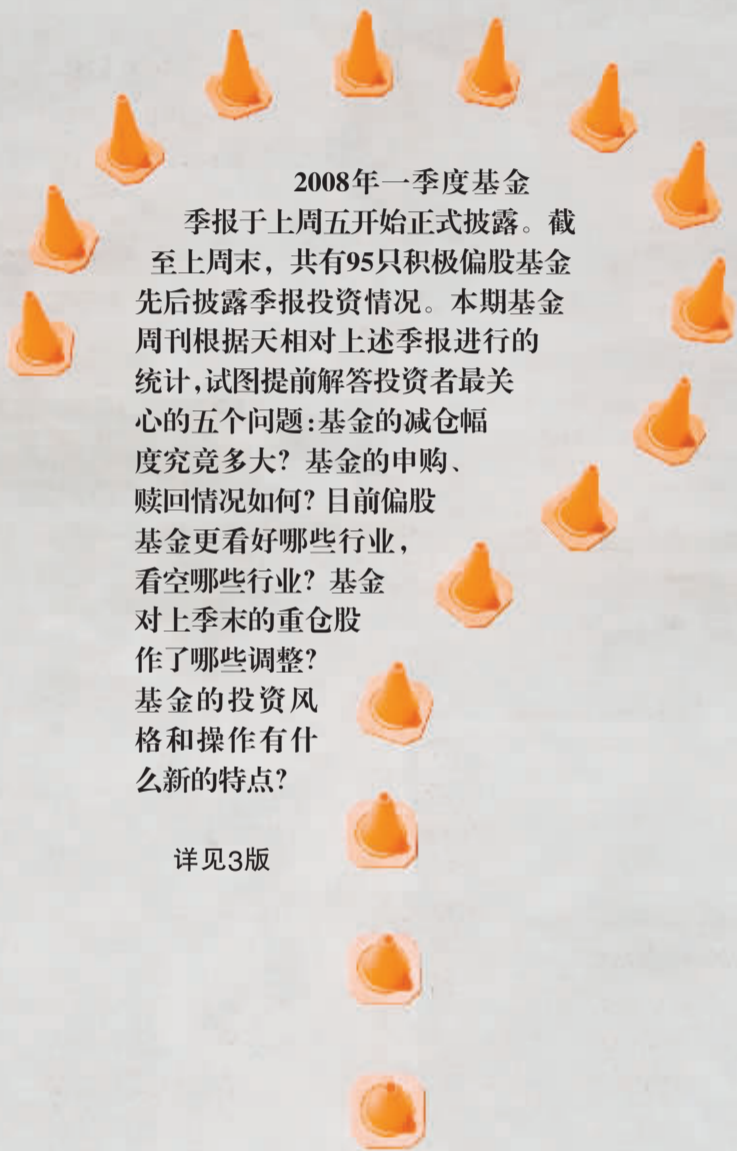 2008年一季度基金
季报于上周五开始正式披露。截
至上周末，共有95只积极偏股基金
先后披露季报投资情况。本期基金
周刊根据天相对上述季报进行的
统计,试图提前解答投资者最关
心的五个问题:基金的减仓幅
度究竟多大？基金的申购、
赎回情况如何？目前偏股
基金更看好哪些行业，
看空哪些行业？基金
对上季末的重仓股
作了哪些调整？
基金的投资风
格和操作有什
么新的特点？
详见3版